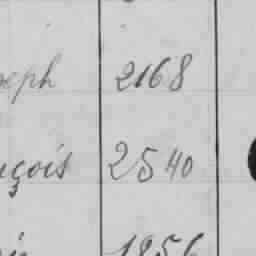 seph 2168
nçois 2540
1856